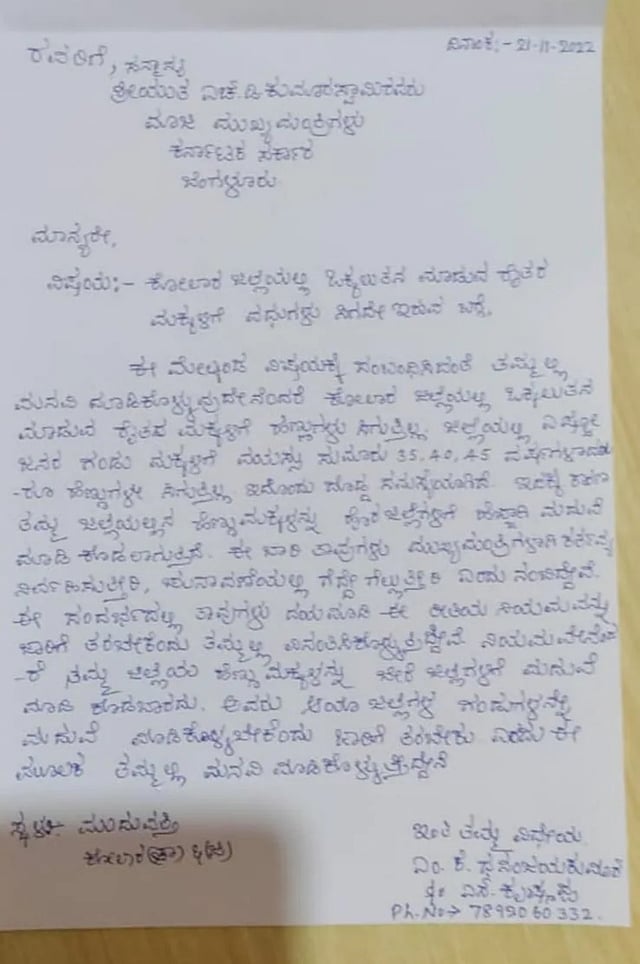 ದಿನಾಂಕ:- 21-11-2022
ರವರಿಗೆ, ಸನ್ಮಾನ್ಯ
ಶ್ರೀಯುತ ಎಚ್.ಡಿ ಕುಮಾರಸ್ವಾಮಿರವರು
ಮಾಜಿ ಮುಖ್ಯಮಂತ್ರಿಗಳು
ಕರ್ನಾಟಕ ಸರ್ಕಾರ
ಬೆಂಗಳೂರು
ಮಾನ್ಯರೇ,
ವಿಷಯ:- ಕೋಲಾರ ಜಿಲ್ಲೆಯಲ್ಲಿ ಒಕ್ಕಲುತನ ಮಾಡುವ ರೈತರ
ಮಕ್ಕಳಿಗೆ ವಧುಗಳು ಸಿಗದೇ ಇರುವ ಬಗ್ಗೆ.
ಈ ಮೇಲ್ಕಂಡ ವಿಷಯಕ್ಕೆ ಸಂಬಂಧಿಸಿದಂತೆ ತಮ್ಮಲ್ಲಿ
ಮನವಿ ಮಾಡಿಕೊಳ್ಳುವುದೇನೆಂದರೆ ಕೋಲಾರ ಜಿಲ್ಲೆಯಲ್ಲಿ ಒಕ್ಕಲುತನ
ಮಾಡುವ ರೈತರ ಮಕ್ಕಳಿಗೆ ಹೆಣ್ಣುಗಳು ಸಿಗುತ್ತಿಲ್ಲ. ಜಿಲ್ಲೆಯಲ್ಲಿ ಎಷ್ಟೋ
ಜನರ ಗಂಡು ಮಕ್ಕಳಿಗೆ ವಯಸ್ಸು ಸುಮಾರು 35.40.45 ವರ್ಷಗಳಾದರು
-ರೂ ಹೆಣ್ಣುಗಳೇ ಸಿಗುತ್ತಿಲ್ಲ ಇದೊಂದು ದೊಡ್ಡ ಸಮಸ್ಯೆಯಾಗಿದೆ. ಇದಕ್ಕೆ ಕಾರಣ
ತಮ್ಮ ಜಿಲ್ಲೆಯಲ್ಲಿನ ಹೆಣ್ಣು ಮಕ್ಕಳನ್ನು ಹೊರ ಜಿಲ್ಲೆಗಳಿಗೆ ಹೆಚ್ಚಾಗಿ ಮದುವೆ
ಮಾಡಿ ಕೊಡಲಾಗುತ್ತಿದೆ. ಈ ಬಾರಿ ತಾವುಗಳು ಮುಖ್ಯಮಂತ್ರಿಗಳಾಗಿ ಕರ್ತವ್ಯ
ನಿರ್ವಹಿಸುತ್ತೀರಿ, ಚುನಾವಣೆಯಲ್ಲಿ ಗೆದ್ದೇ ಗೆಲ್ಲುತ್ತೀರಿ ಎಂದು ನಂಬಿದ್ದೇವೆ.
ಈ ಸಂದರ್ಭದಲ್ಲಿ ತಾವುಗಳು ದಯಮಾಡಿ ಈ ರೀತಿಯ ನಿಯಮವನ್ನು
ಜಾರಿಗೆ ತರಬೇಕೆಂದು ತಮ್ಮಲ್ಲಿ ವಿನಂತಿಸಿಕೊಳ್ಳುತ್ತಿದ್ದೇವೆ. ನಿಯಮವೇನೆಂದ
-ರೆ ತಮ್ಮ ಜಿಲ್ಲೆಯ ಹೆಣ್ಣು ಮಕ್ಕಳನ್ನು ಬೇರೆ ಜಿಲ್ಲೆಗಳಿಗೆ ಮದುವೆ
ಮಾಡಿ ಕೊಡಬಾರದು. ಅವರು ಆಯಾ ಜಿಲ್ಲೆಗಳ ಗಂಡುಗಳನ್ನೇ
ಮದುವೆ ಮಾಡಿಕೊಳ್ಳಬೇಕೆಂದು ಜಾರಿಗೆ ತರಬೇಕು ಎಂದು ಈ
ಮೂಲಕ ತಮ್ಮಲ್ಲಿ ಮನವಿ ಮಾಡಿಕೊಳ್ಳುತ್ತಿದ್ದೇನೆ
ಸ್ಥಳ:- ಮುದುವತ್ತಿ
ಕೋಲಾರ(ತಾ) &(ಜಿ)
ಇಂತಿ ತಮ್ಮ ವಿಧೇಯ
ಎಂ. ಕೆ. ಧನಂಜಯಕುಮಾರ
ಎನ್. ಕೃಷ್ಣಪ್ಪ
Ph.No→ 7899060332.